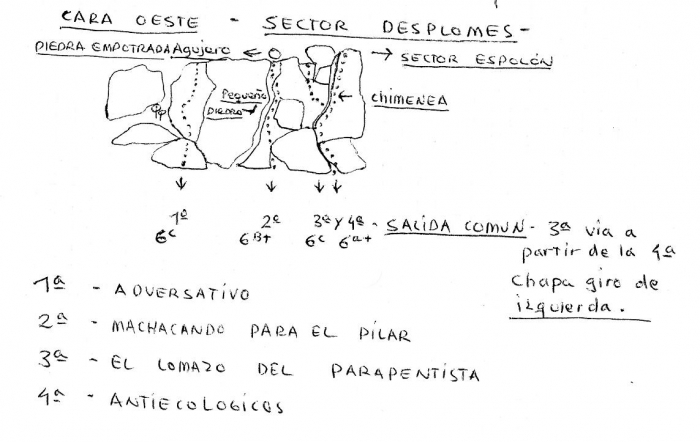 CARA OESTE - SECTOR DESPLOMES-
PIEDRA EMPOTRADA Agujero ← → SECTOR ESPOLÓN
Pequeño
DIEDRO
← CHIMENEA
1ª 2ª 3ª y 4ª - SALIDA COMUN - 3ª via a
6c 6B+ 6c 6a+ partir de la 4ª
chapa giro de
izquierda.
1ª - ADVERSATIVO
2ª - MACHACANDO PARA EL PILAR
3ª - EL LOMAZO DEL PARAPENTISTA
4ª - ANTIECOLOGICOS